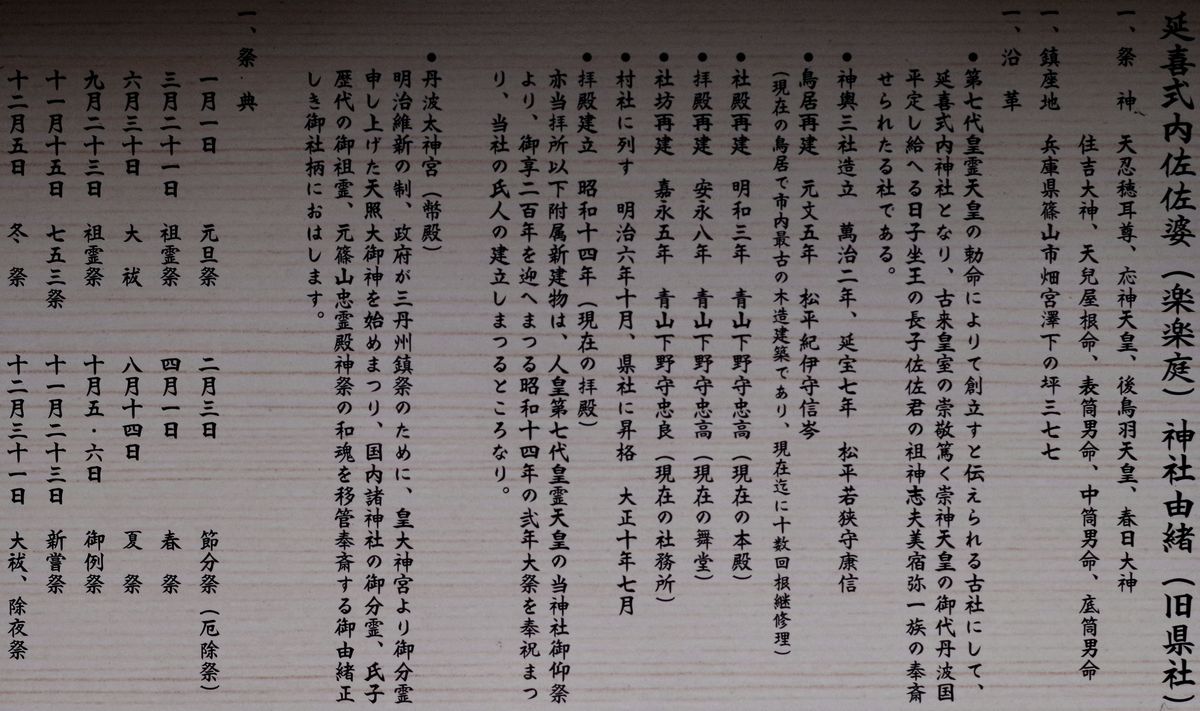 延喜式内佐佐婆（楽楽庭）神社由緒（旧県社）
一、祭　神　天忍穂耳尊、応神天皇、後鳥羽天皇、春日大神
住吉大神、天兒屋根命、表筒男命、中筒男命、底筒男命
一、鎮座地　兵庫県篠山市畑宮澤下の坪三七七
一、沿　革
●第七代皇霊天皇の勅命によりて創立すと伝えられる古社にして、
延喜式内神社となり、古来皇室の崇敬篤く崇神天皇の御代丹波国
平定し給へる日子坐王の長子佐佐君の祖神志夫美宿弥一族の奉斎
せられたる社である。
●神輿三社造立　萬治二年、延宝七年　松平若狭守康信
●鳥居再建　元文五年　松平紀伊守信岑
（現在の鳥居で市内最古の木造建築であり、現在迄に十数回根継修理）
●社殿再建　明和三年　青山下野守忠高（現在の本殿）
●拝殿再建　安永八年　青山下野守忠高（現在の舞堂）
●社坊再建　嘉永五年　青山下野守忠良（現在の社務所）
●村社に列す　明治六年十月、県社に昇格　大正十年七月
●拝殿建立　昭和十四年（現在の拝殿）
亦当拝所以下附属新建物は、人皇第七代皇霊天皇の当神社御仰祭
より、御享二百年を迎へまつる昭和十四年の弐年大祭を奉祝まつ
り、当社の氏人の建立しまつるところなり。
●丹波太神宮（幣殿）
明治維新の制、政府が三丹州鎮祭のために、皇大神宮より御分霊
申し上げた天照大御神を始めまつり、国内諸神社の御分霊、氏子
歴代の御祖霊、元篠山忠霊殿神祭の和魂を移管奉斎する御由緒正
しき御社柄におはします。
一、祭　典
一月一日　元旦祭　二月三日　節分祭（厄除祭）
三月二十一日　祖霊祭　四月一日　春　祭
六月三十日　大　祓　八月十四日　夏　祭
九月二十三日　祖霊祭　十月五・六日　御例祭
十一月十五日　七五三祭　十一月二十三日　新嘗祭
十二月五日　冬　祭　十二月三十一日　大祓、除夜祭